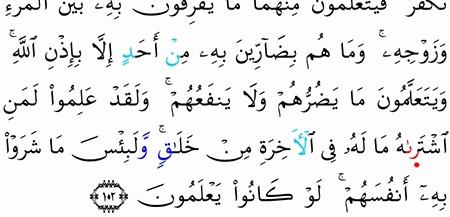 تَكْفُرْ ۖ فَيَتَعَلَّمُونَ مِنْهُمَا مَا يُفَرِّقُونَ بِهِۦ بَيْنَ ٱلْمَرْءِ
وَزَوْجِهِۦ ۚ وَمَا هُم بِضَآرِّينَ بِهِۦ مِنْ أَحَدٍ إِلَّا بِإِذْنِ ٱللَّهِ ۚ
وَيَتَعَلَّمُونَ مَا يَضُرُّهُمْ وَلَا يَنفَعُهُمْ ۚ وَلَقَدْ عَلِمُوا۟ لَمَنِ
ٱشْتَرَىٰهُ مَا لَهُۥ فِى ٱلْـَٔاخِرَةِ مِنْ خَلَـٰقٍ ۚ وَلَبِئْسَ مَا شَرَوْا۟
بِهِۦٓ أَنفُسَهُمْ ۚ لَوْ كَانُوا۟ يَعْلَمُونَ ١٠٢